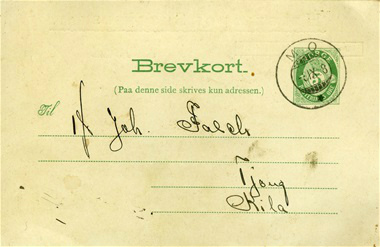 Brevkort.
(Paa denne side skrives kun adressen.)
Til
Joh. Falch
Tjong
Kila